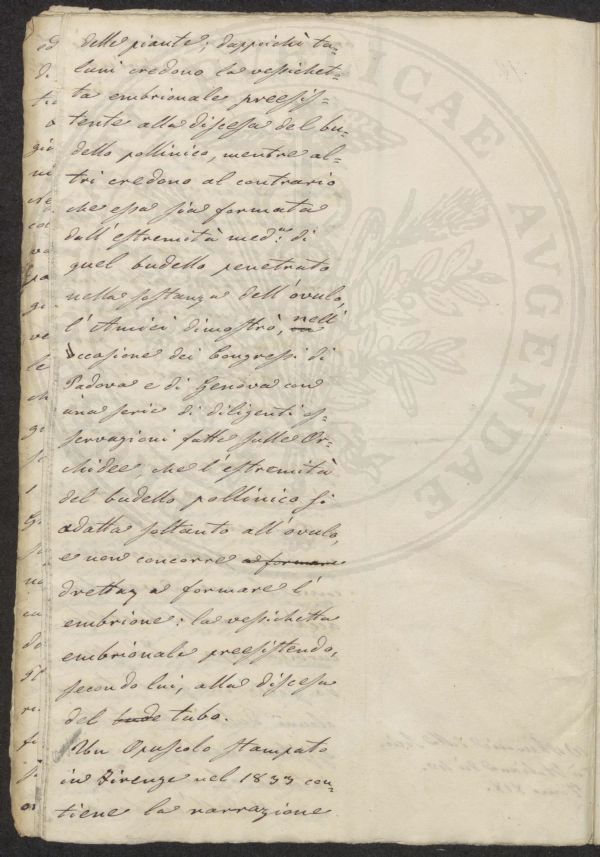 delle piante; dappoichè ta-
luni credono la vessichet-
ta embrionale preesis-
tente alla discesa del bu-
dello pollinico, mentre al-
tri credono al contrario
che essa sia formata
dall'estremità med.ma di
quel budello penetrato
nella sostanza dell'ovulo,
l'Amici dimostrò, nell'
occasione dei Congressi di
Padova e di Genova con
una serie di diligenti os-
servazioni fatte sulle Or-
chidee, che l'estremità
del budello pollinico si
adatta soltanto all'ovulo,
e non concorre a formare
a formare l'
embrione: la vessichetta
embrionale preesistendo,
secondo lui, alla discesa
del bude tubo.
Un Opuscolo stampato
in Firenze nel 1833 con-
tiene la narrazione